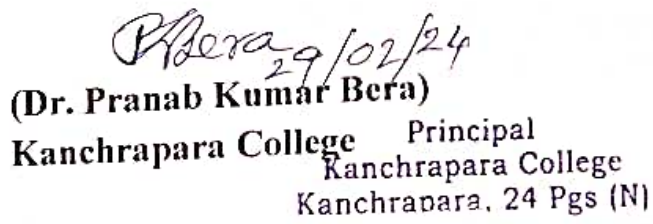 PBera
29/02/24
(Dr. Pranab Kumar Bera)
Kanchrapara College
Principal
Kanchrapara College
Kanchrapara, 24 Pgs (N)